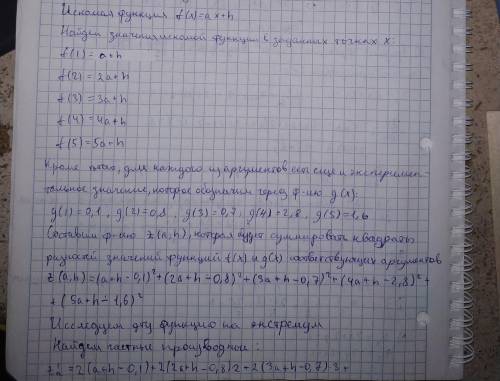 Искомая функция f(x)=ax+h
Найдем значения искомой функции в заданных точках x:
f(1)=a+h
f(2)=2a+h
f(3)=3a+h
f(4)=4a+h
f(5)=5a+h
Кроме того, для каждого из аргументов есть еще и эксперимен-
тальное значение, которое обозначим через ф-ию g(x):
g(1)=0,1, g(2)=0,8, g(3)=0,7, g(4)=2,8, g(5)=1,6
Составим ф-ию z(a,h), которая будет суммировать квадраты
разностей значений функций f(x) и g(x) соответствующих аргументов
z(a,h)=(a+h-0,1)²+(2a+h-0,8)²+(3a+h-0,7)²+(4a+h-2,8)²+
+(5a+h-1,6)²
Исследуем эту функцию на экстремум
Найдем частные производной:
z'a=2(a+h-0,1)+2(2a+h-0,8)2+2(3a+h-0,7)·3+